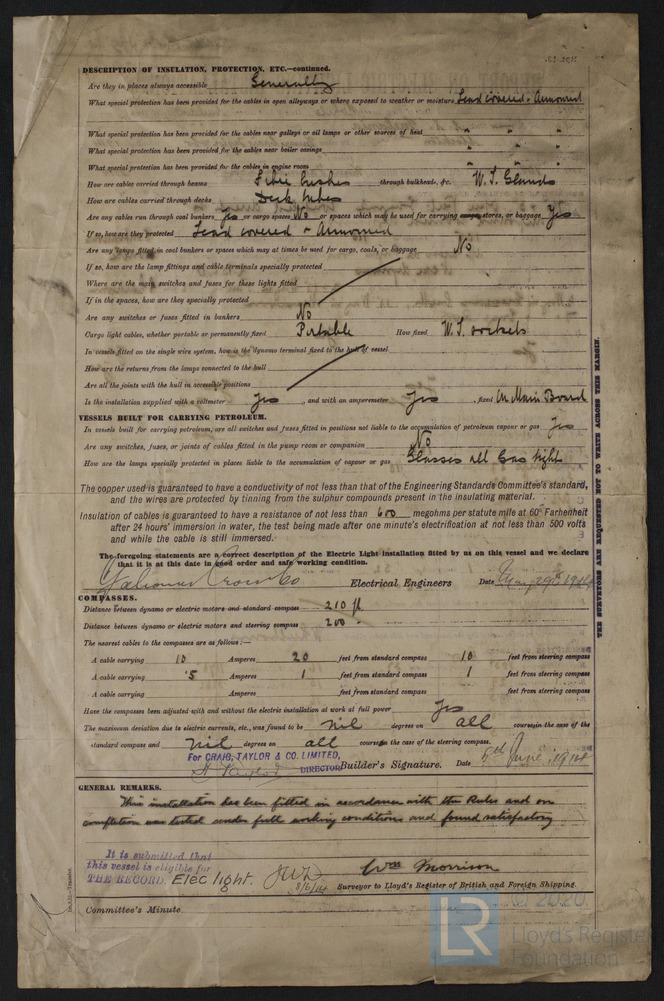 DESCRIPTION OF INSULATION, PROTECTION, ETC.—continued.
Are they in places always accessible Generally
What special protection has been provided for the cables in open alleyways or where exposed to weather or moisture Lead covered & Armoured
What special protection has been provided for the cables near galleys or oil lamps or other sources of heat " " "
What special protection has been provided for the cables near boiler casings " " "
What special protection has been provided for the cables in engine room " " "
How are cables carried through beams Fibre bushes through bulkheads, &c. W.T. Glands
How are cables carried through decks Deck tubes
Are any cables run through coal bunkers Yes or cargo spaces No or spaces which may be used for carrying cargo, stores, or baggage Yes
If so, how are they protected Lead covered & Armoured
Are any lamps fitted in coal bunkers or spaces which may at times be used for cargo, coals, or baggage No
If so, how are the lamp fittings and cable terminals specially protected
Where are the main switches and fuses for these lights fitted
If in the spaces, how are they specially protected
Are any switches or fuses fitted in bunkers No
Cargo light cables, whether portable or permanently fixed Portable How fixed W.T. sockets
In vessels fitted on the single wire system, how is the dynamo terminal fixed to the hull of vessel
How are the returns from the lamps connected to the hull
Are all the joints with the hull in accessible positions
Is the installation supplied with a voltmeter Yes, and with an amperemeter Yes, fixed On Main Board
VESSELS BUILT FOR CARRYING PETROLEUM.
In vessels built for carrying petroleum, are all switches and fuses fitted in positions not liable to the accumulation of petroleum vapour or gas Yes
Are any switches, fuses, or joints of cables fitted in the pump room or companion No
How are the lamps specially protected in places liable to the accumulation of vapour or gas Glasses all Gas tight
The copper used is guaranteed to have a conductivity of not less than that of the Engineering Standards Committee's standard,
and the wires are protected by tinning from the sulphur compounds present in the insulating material.
Insulation of cables is guaranteed to have a resistance of not less than 600 megohms per statute mile at 60° Farhenheit
after 24 hours' immersion in water, the test being made after one minute's electrification at not less than 500 volts
and while the cable is still immersed.
The foregoing statements are a correct description of the Electric Light installation fitted by us on this vessel and we declare
that it is at this date in good order and safe working condition.
Electrical Engineers Date May 29th 1914
COMPASSES.
Distance between dynamo or electric motors and standard compass 210 ft
Distance between dynamo or electric motors and steering compass 200 "
The nearest cables to the compasses are as follows:—
A cable carrying 10 Amperes 20 feet from standard compass 10 feet from steering compass
A cable carrying .5 Amperes 1 feet from standard compass 1 feet from steering compass
A cable carrying Amperes feet from standard compass feet from steering compass
Have the compasses been adjusted with and without the electric installation at work at full power Yes
The maximum deviation due to electric currents, etc., was found to be nil degrees on all courses in the case of the
standard compass and nil degrees on all courses in the case of the steering compass.
For CRAIG, TAYLOR & CO. LIMITED,
DIRECTOR Builder's Signature. Date June 1914
GENERAL REMARKS.
This installation has been fitted in accordance with the Rules and on
completion was tested under full working conditions and found satisfactory
It is submitted that
this vessel is eligible for
THE RECORD. Elec light. 8/6/14
Wm Morrison
Surveyor to Lloyd's Register of British and Foreign Shipping.
Committee's Minute
THE SURVEYORS ARE REQUESTED NOT TO WRITE ACROSS THIS MARGIN.
2020
LR
Lloyd's Register
Foundation